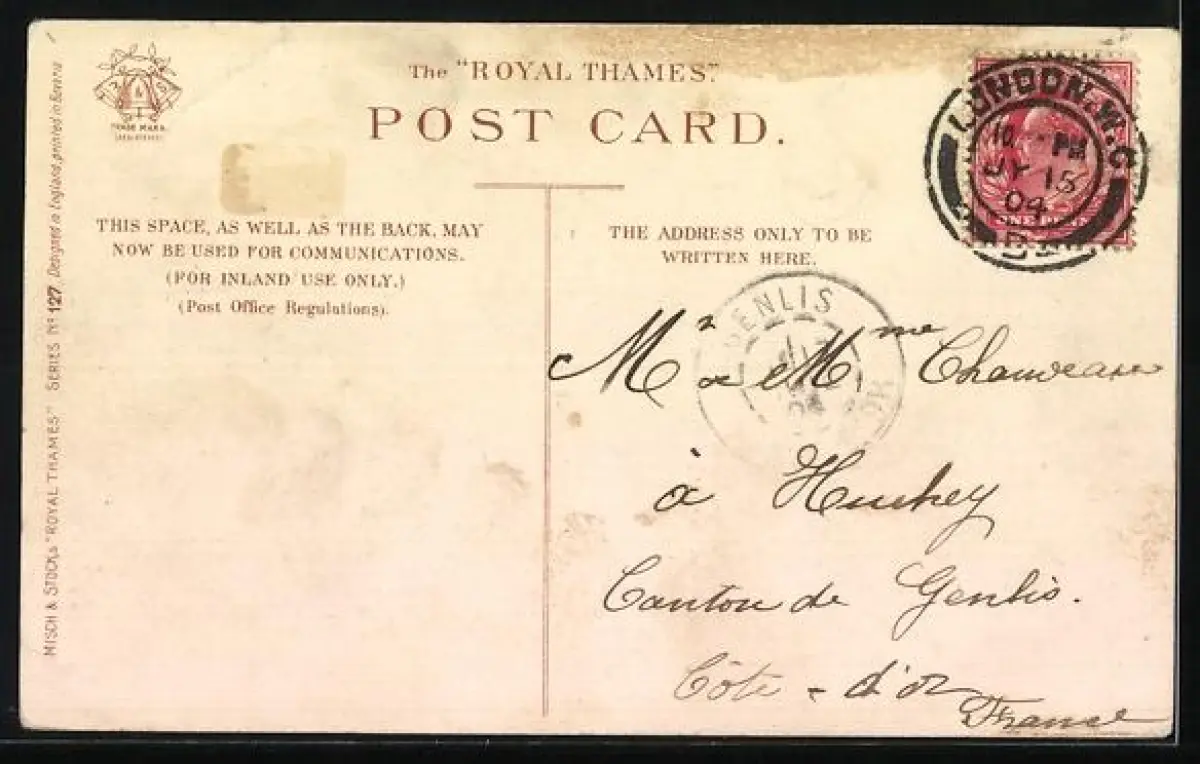 The "ROYAL THAMES".
POST CARD.
TRADE MARK
THIS SPACE, AS WELL AS THE BACK, MAY
NOW BE USED FOR COMMUNICATIONS.
(FOR INLAND USE ONLY.)
(Post Office Regulations).
THE ADDRESS ONLY TO BE
WRITTEN HERE.
LONDON. W.C
10 PM
JY 15
04
ONE PENNY
GENLIS
Mr & Mme Chauveau
à Huchey
Canton de Genlis.
Côte - d'or
France
MISCH & STOCK'S "ROYAL THAMES" SERIES No 127. Designed in England, printed in Bavaria